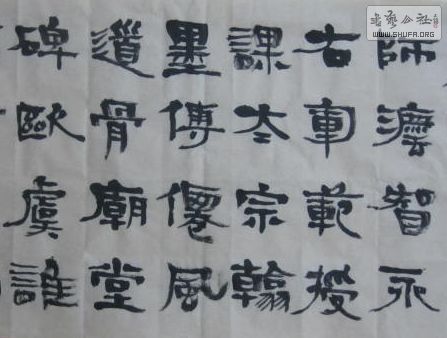 師灋智永
右軍範授
課太宗翰
墨傳僊風
道骨廟堂
碑歐虞誰
書藝公社
WWW.SHUFA.ORG